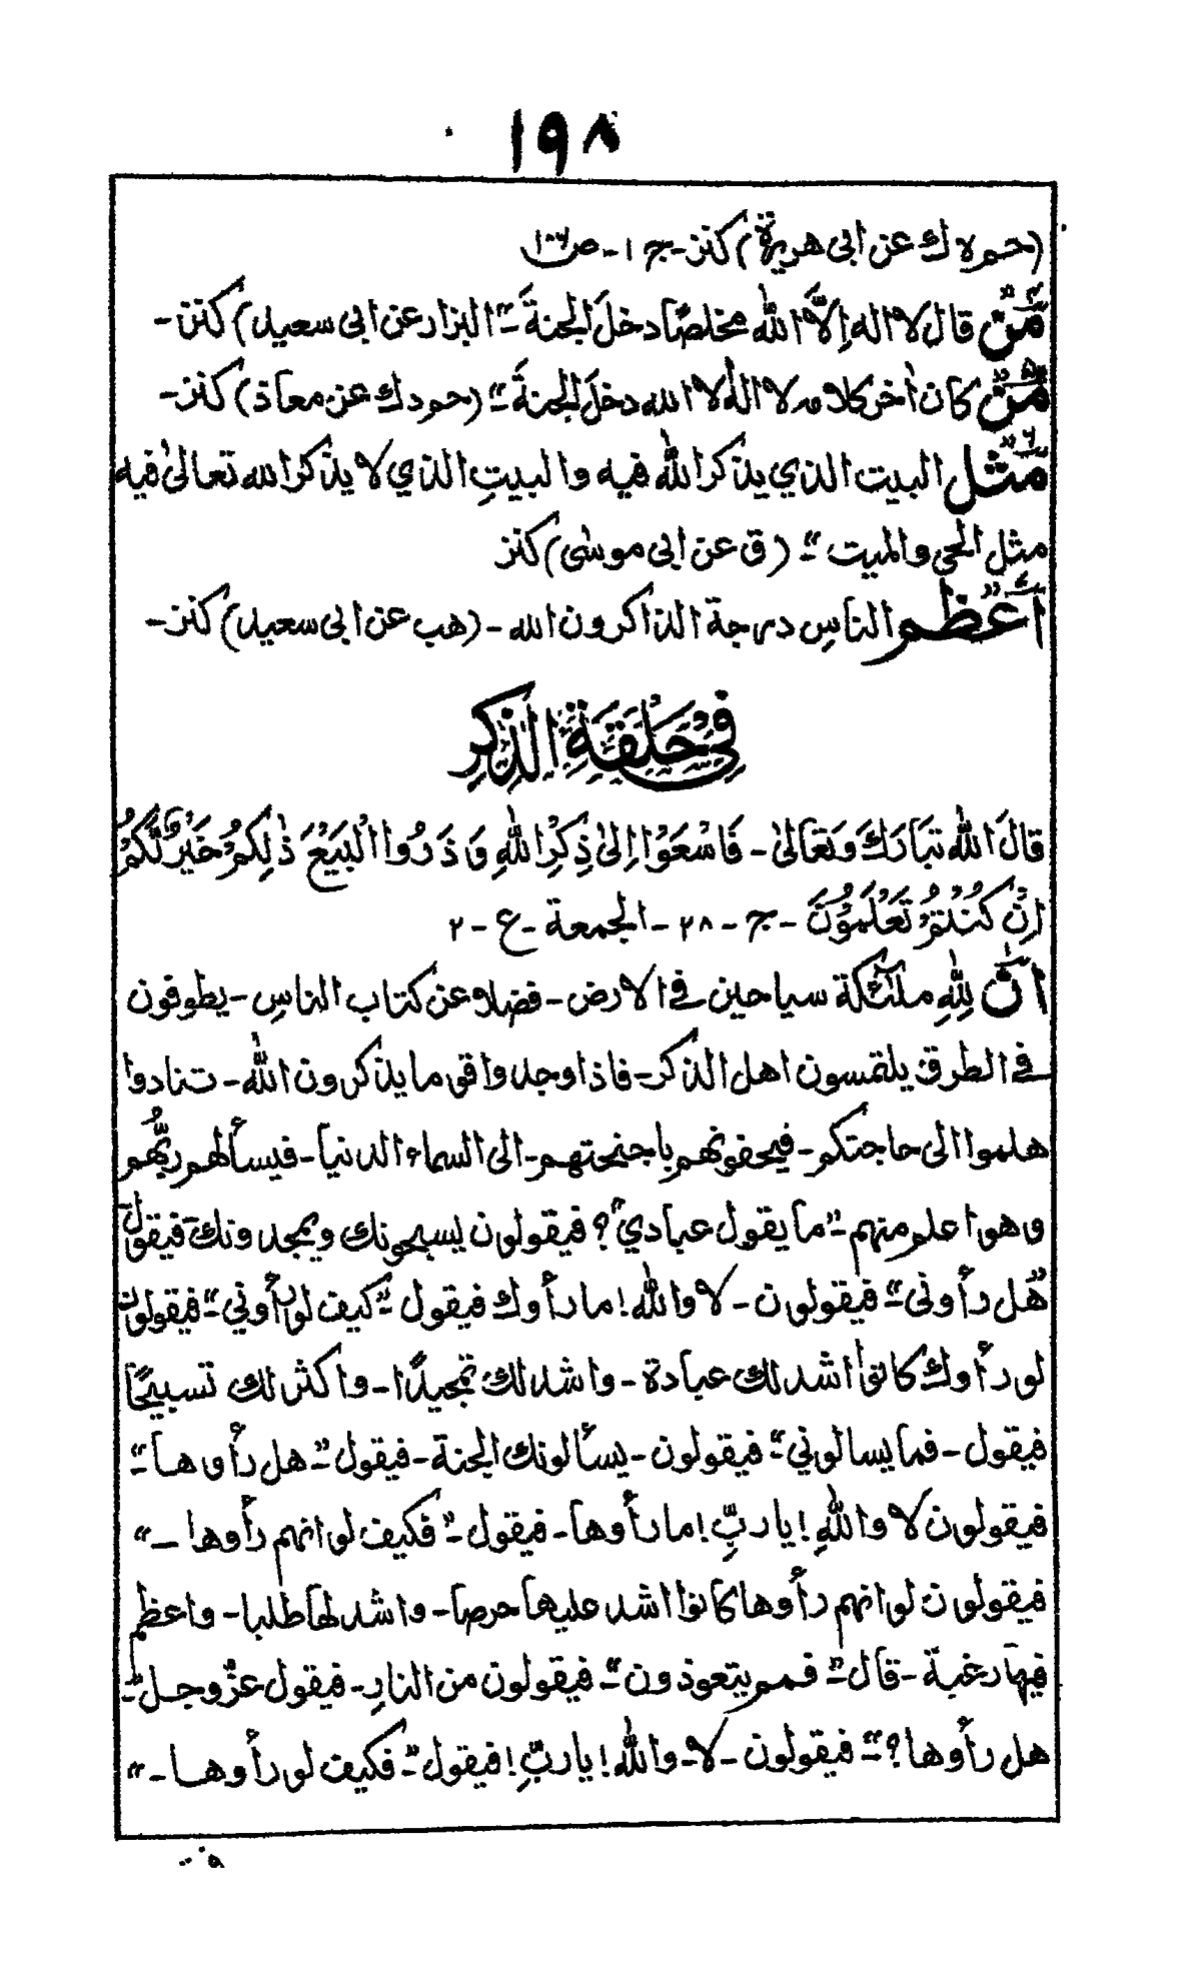 ١٩٨
(حم ه ك عن ابى هريرة) كنز - ج ١ - ص
مَنْ قال لا اله اِلَّا اللهُ مخلصًا دخلَ الجنةَ ــ" البزار عن ابى سعيد) كنز -
مَنْ كان اٰخر كلامه لا الٰه الا الله دخلَ الجنةَ ــ" (حم د ك عن معاذ) كنز -
مَثل البيت الذي يذكر اللهُ فيه والبيتِ الذي لا يذكر الله تعالىٰ فيه
مثل الحي والميت ــ" (ق عن ابى موسىٰ) كنز
اَعظم الناسِ درجة الذاكرون الله - (هب عن ابى سعيد) كنز -
فِىْ حَلْقَةِ الذِّكْرِ
قالَ اللهُ تبَارَكَ وَتَعَالىٰ - فَاسْعَوْا اِلىٰ ذِكْرِ اللهِ وَذَرُوا الْبَيْعَ ذٰلِكُمْ خَيْرٌ لَّكُمْ
اِنْ كُنْتُمْ تَعْلَمُوْنَ - ج - ٢٨ - الجمعة - ع - ٢
انَّ لِلّٰهِ ملٰئكة سياحين فى الارض - فضلا عن كتاب الناسِ - يطوفون
فى الطرق يلتمسون اهل الذكر - فاذا وجدوا قوما يذكرون اللهَ - تنادوا
هلموا الى حاجتكم - فيحفونهم باجنحتهم - الى السماء الدنيا - فيسألهم ربُّهُم
وهو اعلم منهم ــ" ما يقول عبادي"؟ فيقولون يسبحونك ويمجدونك فيقولُ
"هل رأونى ــ" فيقولون - لا واللهِ! ما رأوك فيقول ــ" كيف لو رأوني ــ" فيقولون
لو رأوك كانوا اشد لك عبادة - واشد لك تمجيدًا - واكثر لك تسبيحًا
فيقول - فما يسالوني ــ" فيقولون - يسألونك الجنة - فيقول ــ" هل رأوها ــ"
فيقولون لا واللهِ! يا ربِّ! ما رأوها - فيقول ــ" فكيف لو انهم رأوها ــ"
فيقولون لو انهم رأوها كانوا اشد عليها حرصا - واشد لها طلبا - واعظم
فيها رغبة - قال ــ" فمم يتعوذون ــ" فيقولون من النارِ - فيقول عزّ وجل ــ"
هل رأوها؟ ــ" فيقولون - لا - واللهِ! يا ربِّ! فيقول ــ" فكيف لو رأوها ــ"